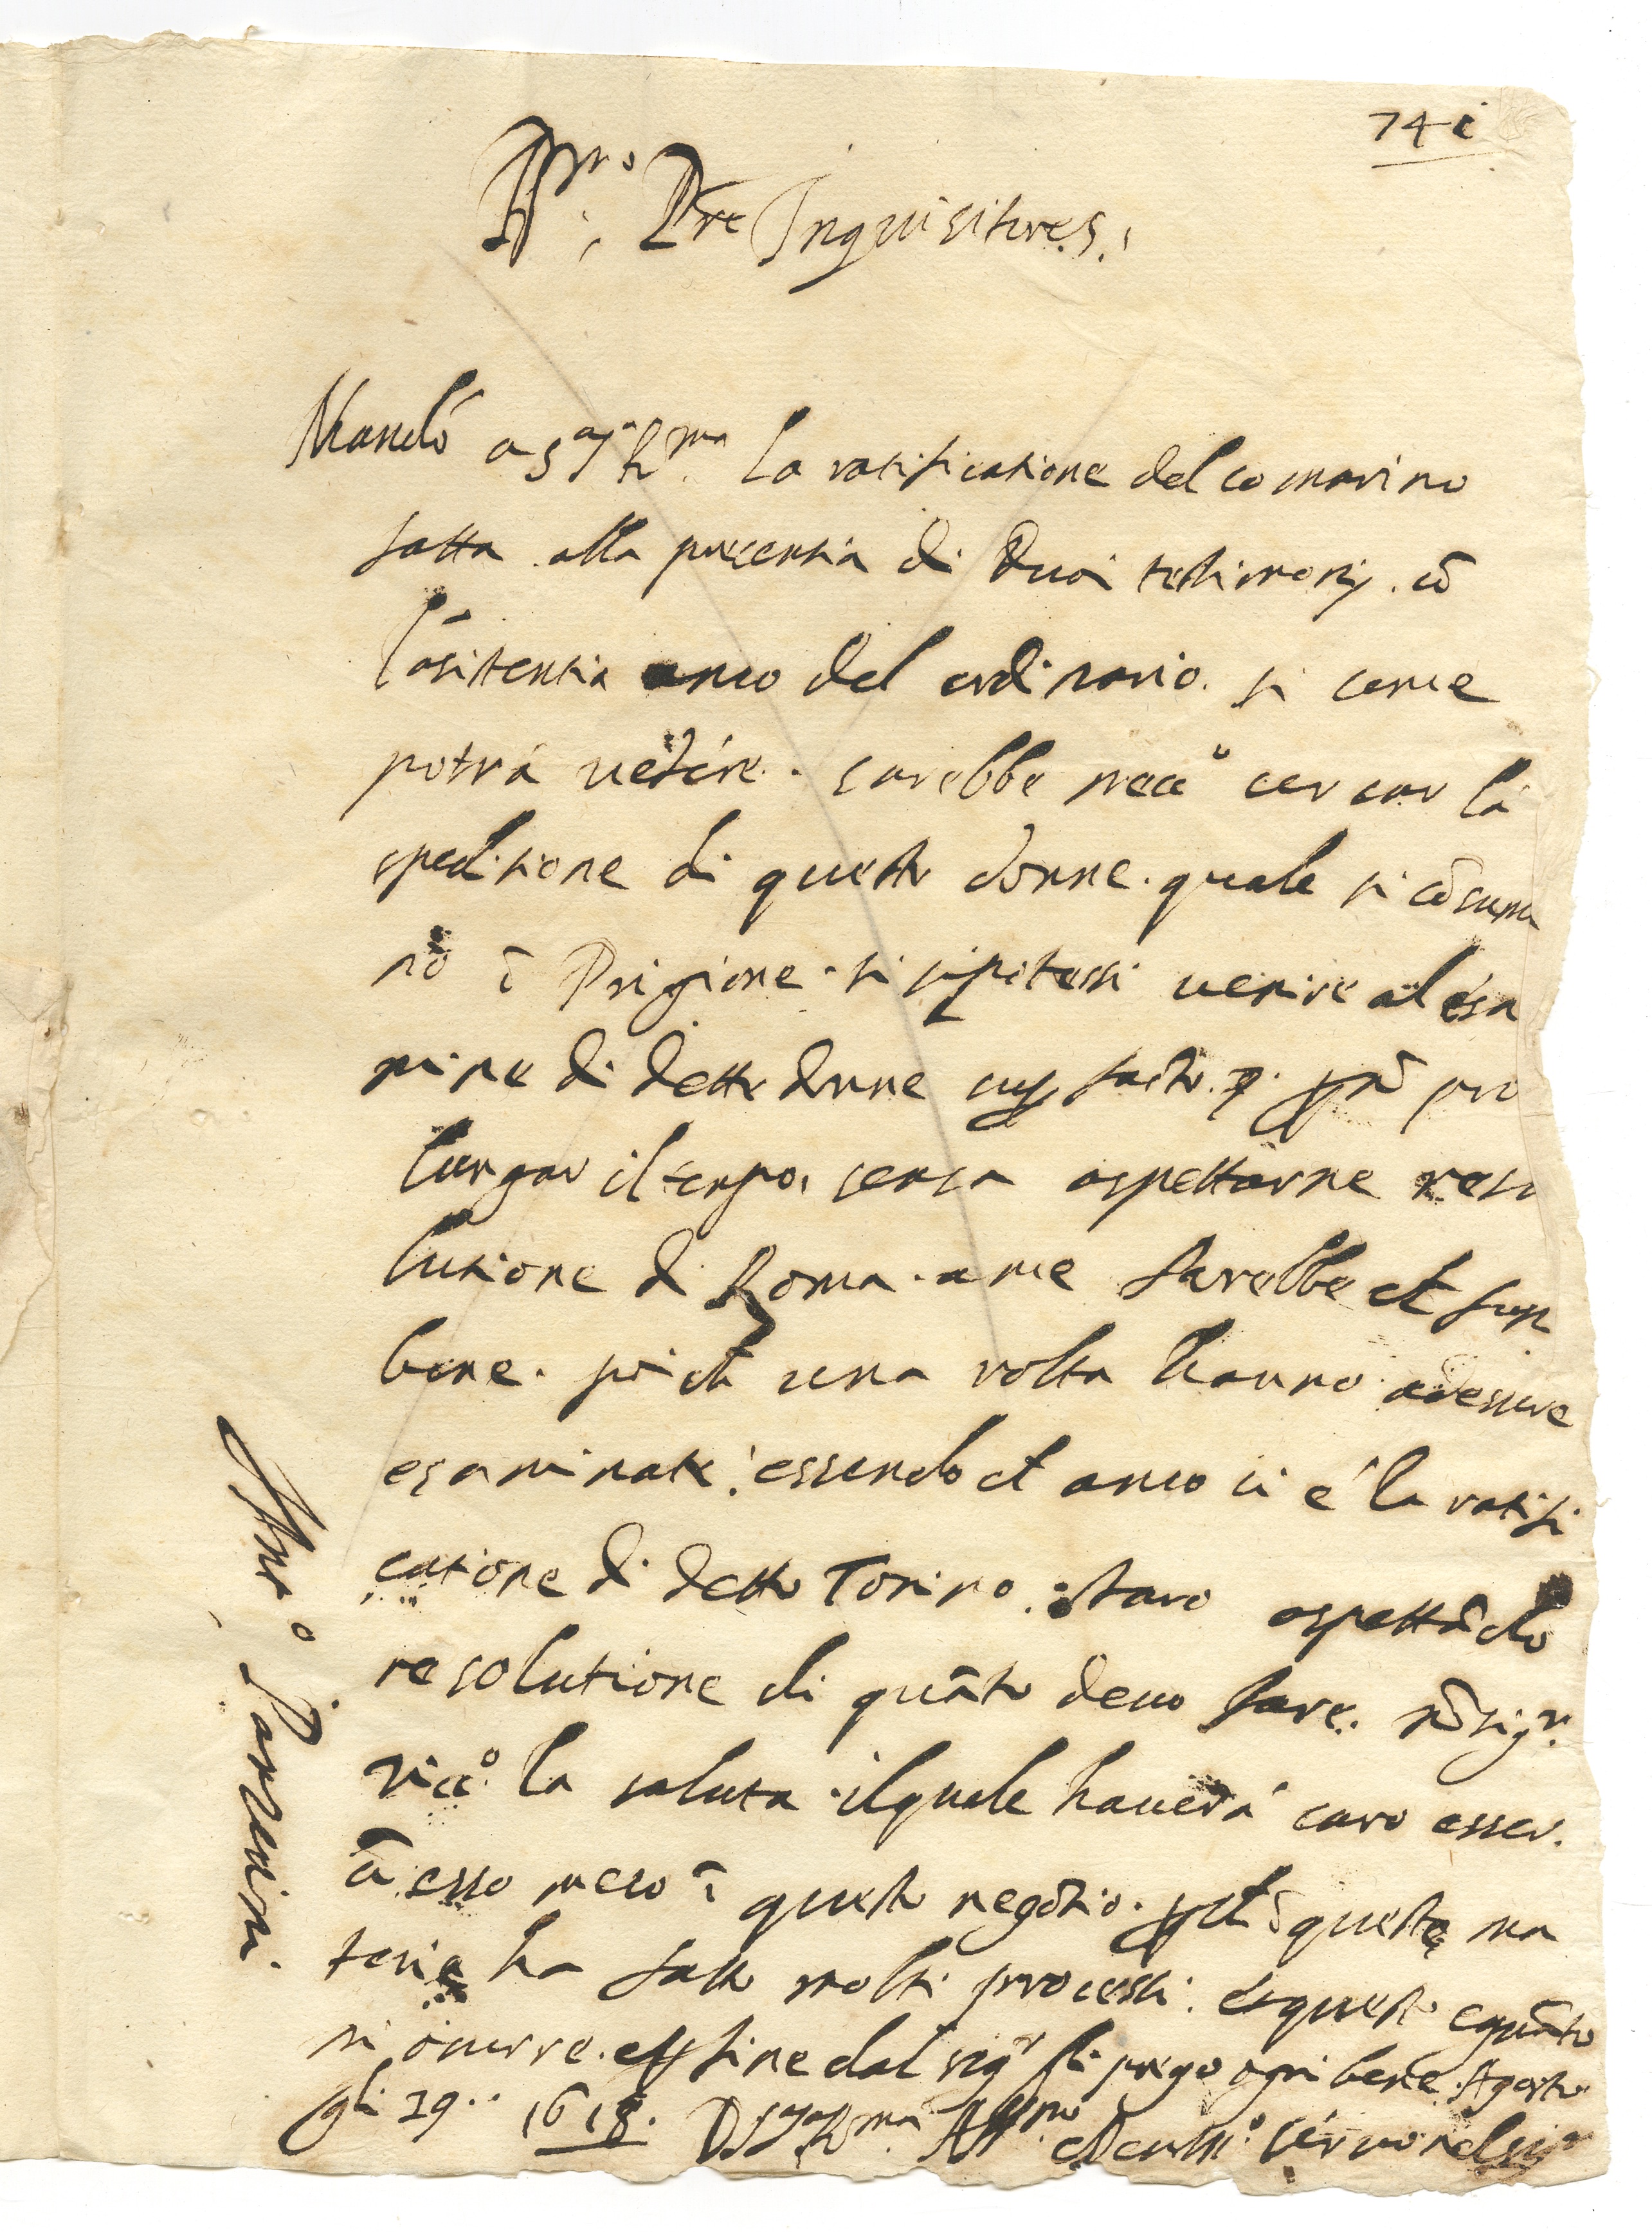 74 i
Rmo: Pre Inquisitores.
Mandó a S. S. R.ma la ratificatione del comorino
fatta alla presentia di Duoi testimonij. cō
l'asistentia anco del ordinario. si come
potrá vedere. sarebbe necco cercar la
speditione di queste donne. quale si cōsuma
nō ī Prigione. si si potessi venire al esa
mine di dette donne
lungar il tempo, senza aspettarne reso
lutione di Roma. a me sarebbe
bene. poi ch una volta hanno adessere
esaminate. essendo ch anco ci é la ratifi
catione di detto Torino. staro aspettādo
resolutione di quāto devo fare. mōsigr.
vicco. la saluta. il quale haverá caro esser.
esso meco ī questo negotio. ī questa ma
teria ha fatto molti processi. e questo e quāto
mi ocurre. fine dal sigr li prego ogni bene. Agosto
gli 19.. 1618. D. S. R.ma servo nel sigr
Anto Parveini.